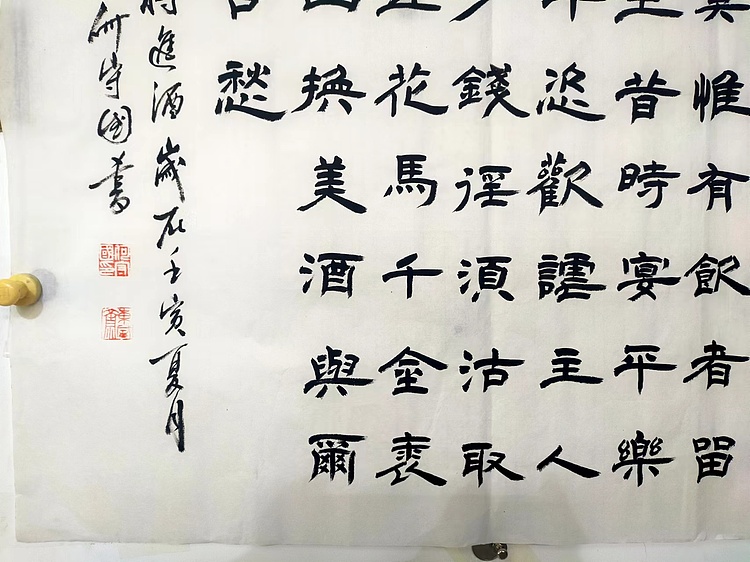 寞惟有飲者留
王昔時宴平樂
千恣歡謔主人
少錢徑須沽取
五花馬千金裘
出換美酒與爾
古愁
將進酒歲在壬寅夏月
何守國書